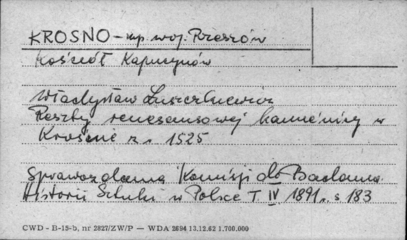 KROSNO - mp woj. Rzeszów
Kościół Kapucynów
Władysław Łuszczkiewicz
Reszty renesansowej kamienicy w
Krośnie z r. 1525
Sprawozdania Komisji do Badania
Historii Sztuki w Polsce T. IV 1891 r. s 183
CWD - B-15-b, nr 2827/ZW/P — WDA 2694 13.12.62 1.700.000